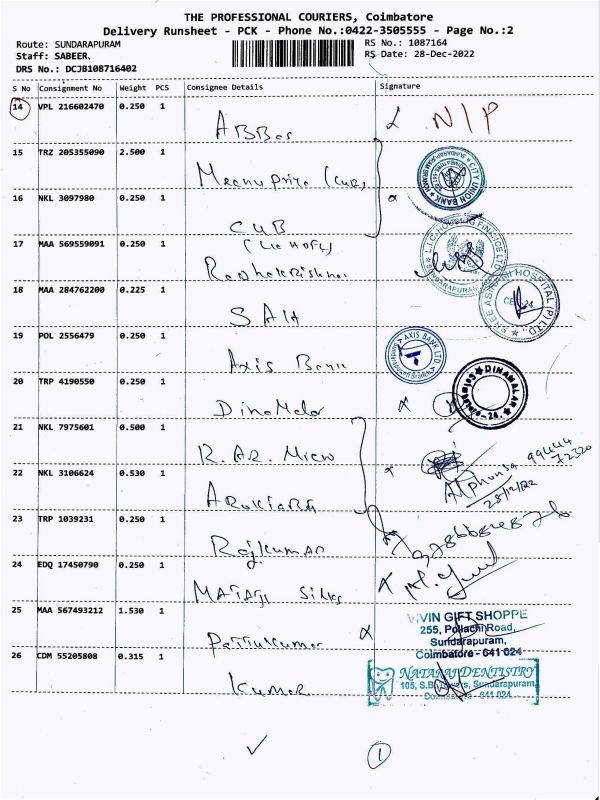 THE PROFESSIONAL COURIERS, Coimbatore
Delivery Runsheet - PCK - Phone No.:0422-3505555 - Page No.:2
Route: SUNDARAPURAM
RS No.: 1087164
Staff: SABEER.
RS Date: 28-Dec-2022
DRS No.: DCJB108716402
S No Consignment No Weight PCS Consignee Details Signature
14 VPL 216602470 0.250 1
ABBas N/P
15 TRZ 205355090 2.500 1
Meenupriya (CUB)
CITY UNION BANK
16 NKL 3097980 0.250 1
CUB
17 MAA 569559091 0.250 1
(LIC HOFL)
Radhakrishnan
18 MAA 284762200 0.225 1
SAH
SREE ASWINI HOSPITAL (P) LTD.
19 POL 2556479 0.250 1
Axis Bank
AXIS BANK LTD
20 TRP 4190550 0.250 1
DinaMalar
DINAMALAR
21 NKL 7975601 0.500 1
R. AR. Micro
99444
72320
22 NKL 3106624 0.530 1
Alphonsa
28/12/22
23 TRP 1039231 0.250 1
Rajkumar
24 EDQ 17450790 0.250 1
Silks
25 MAA 567493212 1.530 1
VIVIN GIFT SHOPPE
255, Pollachi Road,
Sundarapuram,
Coimbatore - 641 024
26 CDM 55205808 0.315 1
Kumar
NATARAJ DENTISTRY
105, S.B. Towers, Sundarapuram,
Coimbatore - 641 024
1